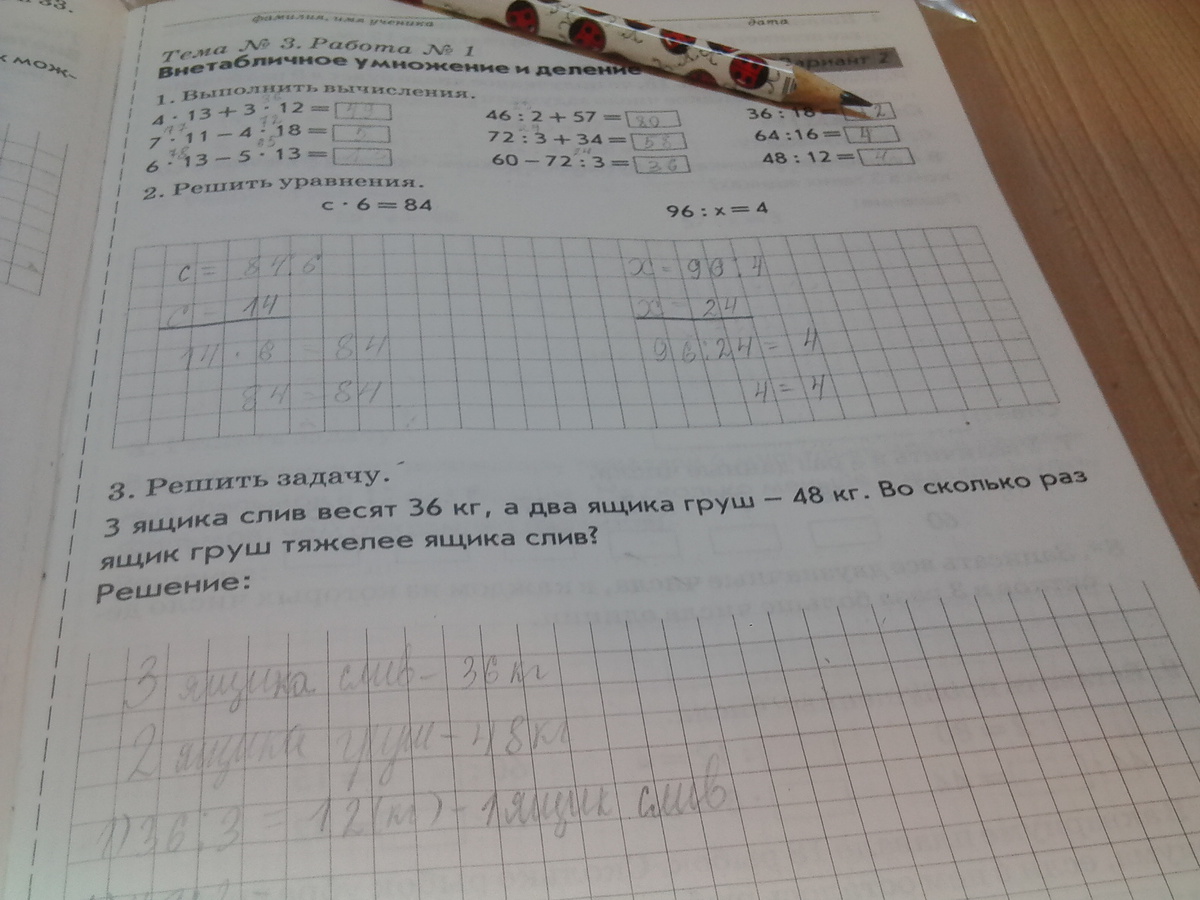 фамилия, имя ученика
дата
Тема № 3. Работа № 1
Внетабличное умножение и деление
Вариант 2
1. Выполнить вычисления.
4 · 13 + 3 · 12 =
46 : 2 + 57 = 80
36 : 18 = 2
7 · 11 − 4 · 18 = 5
72 : 3 + 34 = 58
64 : 16 = 4
6 · 13 − 5 · 13 = 13
60 − 72 : 3 = 36
48 : 12 = 4
2. Решить уравнения.
с · 6 = 84
96 : х = 4
с = 84:6
х = 96:4
с = 14
х = 24
14 · 6 = 84
96:24 = 4
84 = 84
4 = 4
3. Решить задачу.
3 ящика слив весят 36 кг, а два ящика груш – 48 кг. Во сколько раз
ящик груш тяжелее ящика слив?
Решение:
3 ящика слив – 36 кг
2 ящика груш – 48 кг
1) 36:3 = 12 (кг) – 1 ящик слив